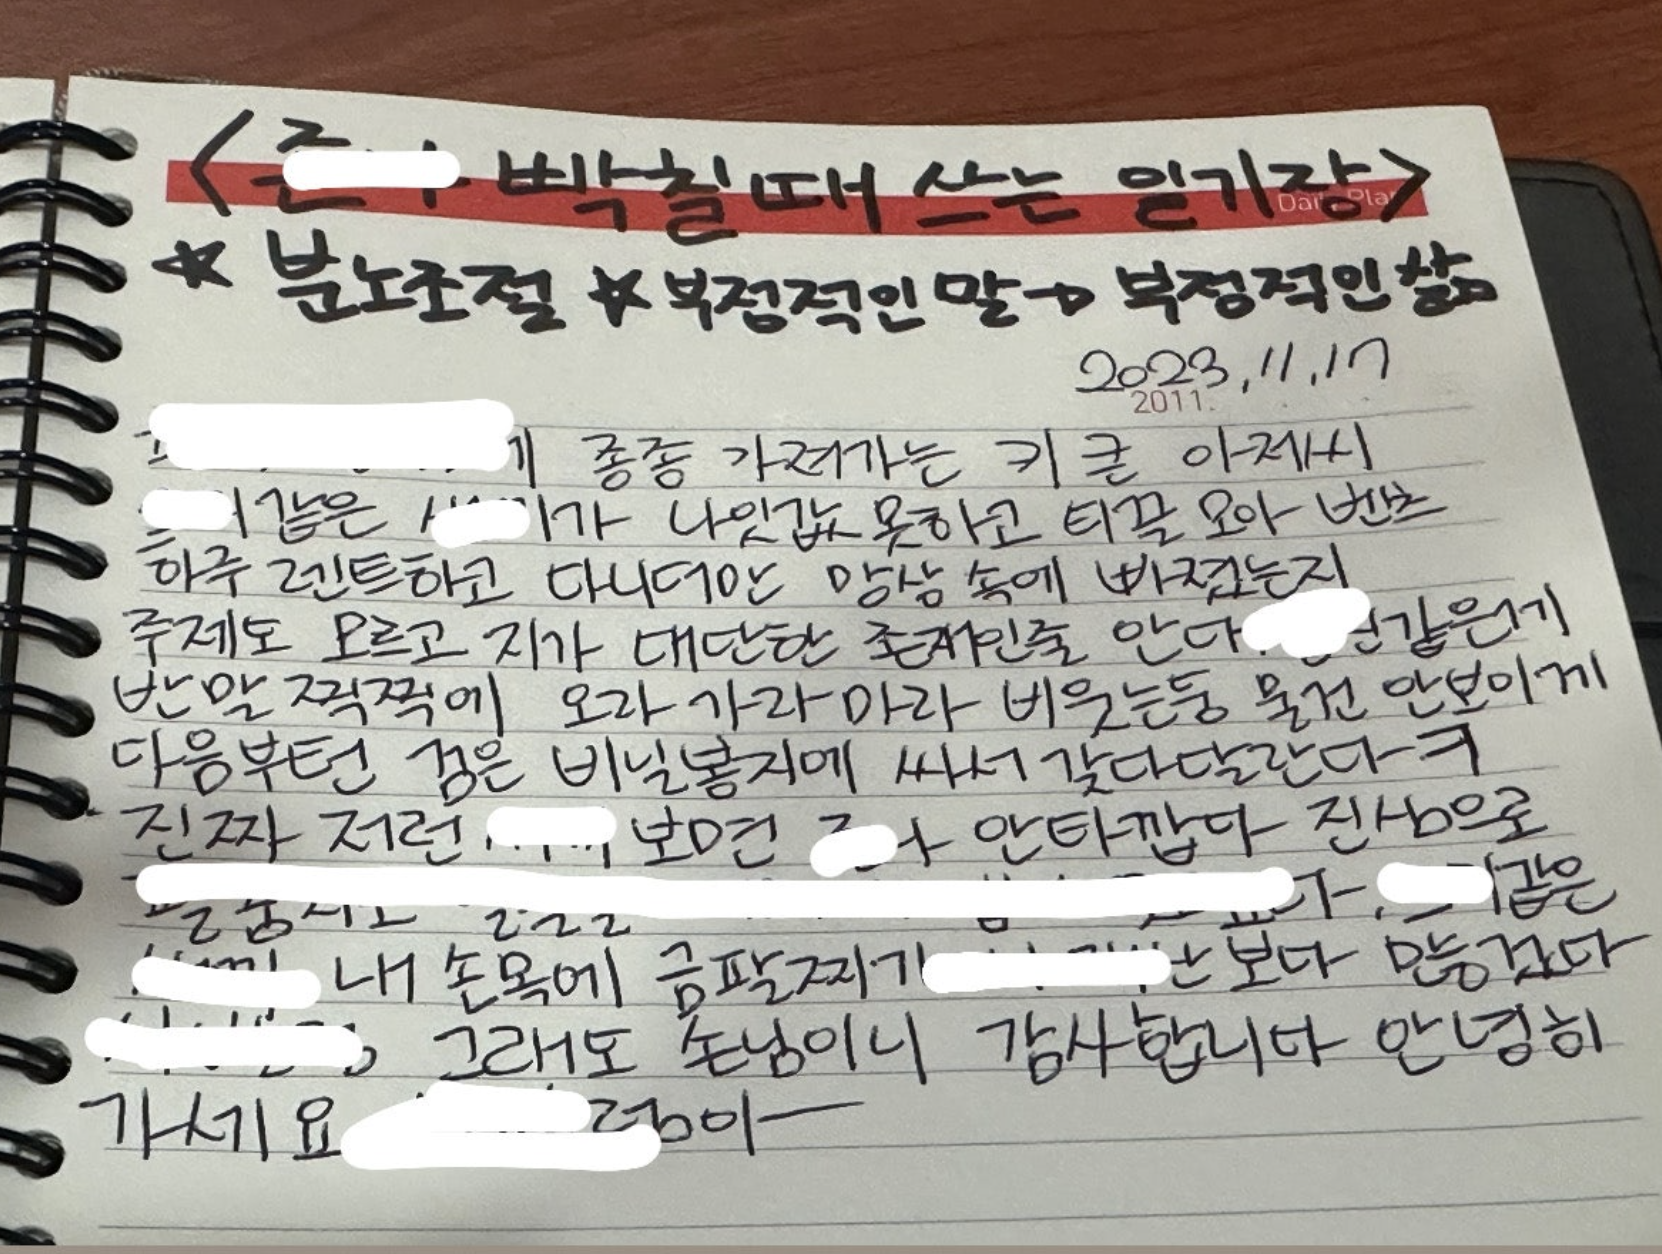 빡칠때 쓰는 일기장>
Daily Pla
☆ 분노조절 ☆ 부정적인 말→ 부정적인 삶
2023.11.17
2011.
종종 가져가는 키 큰 아제씨
같은 가 나잇값 못하고 티끌 모아 벤츠
하루 렌트하고 다니더만 망상 속에 빠졌는지
주제도 모르고 지가 대단한 존재인줄 안다. 같은게
반말 찍찍에 오라 가라 마라 비웃는둥 물건 안보이게
다음부턴 검은 비닐봉지에 싸서 갖다달란다ㅋ
진짜 저런 보면 안타깝다 진심으로
다. 같은
내 손목에 금팔찌가 보다 많겠다
그래도 손님이니 감사합니다 안녕히
가세요